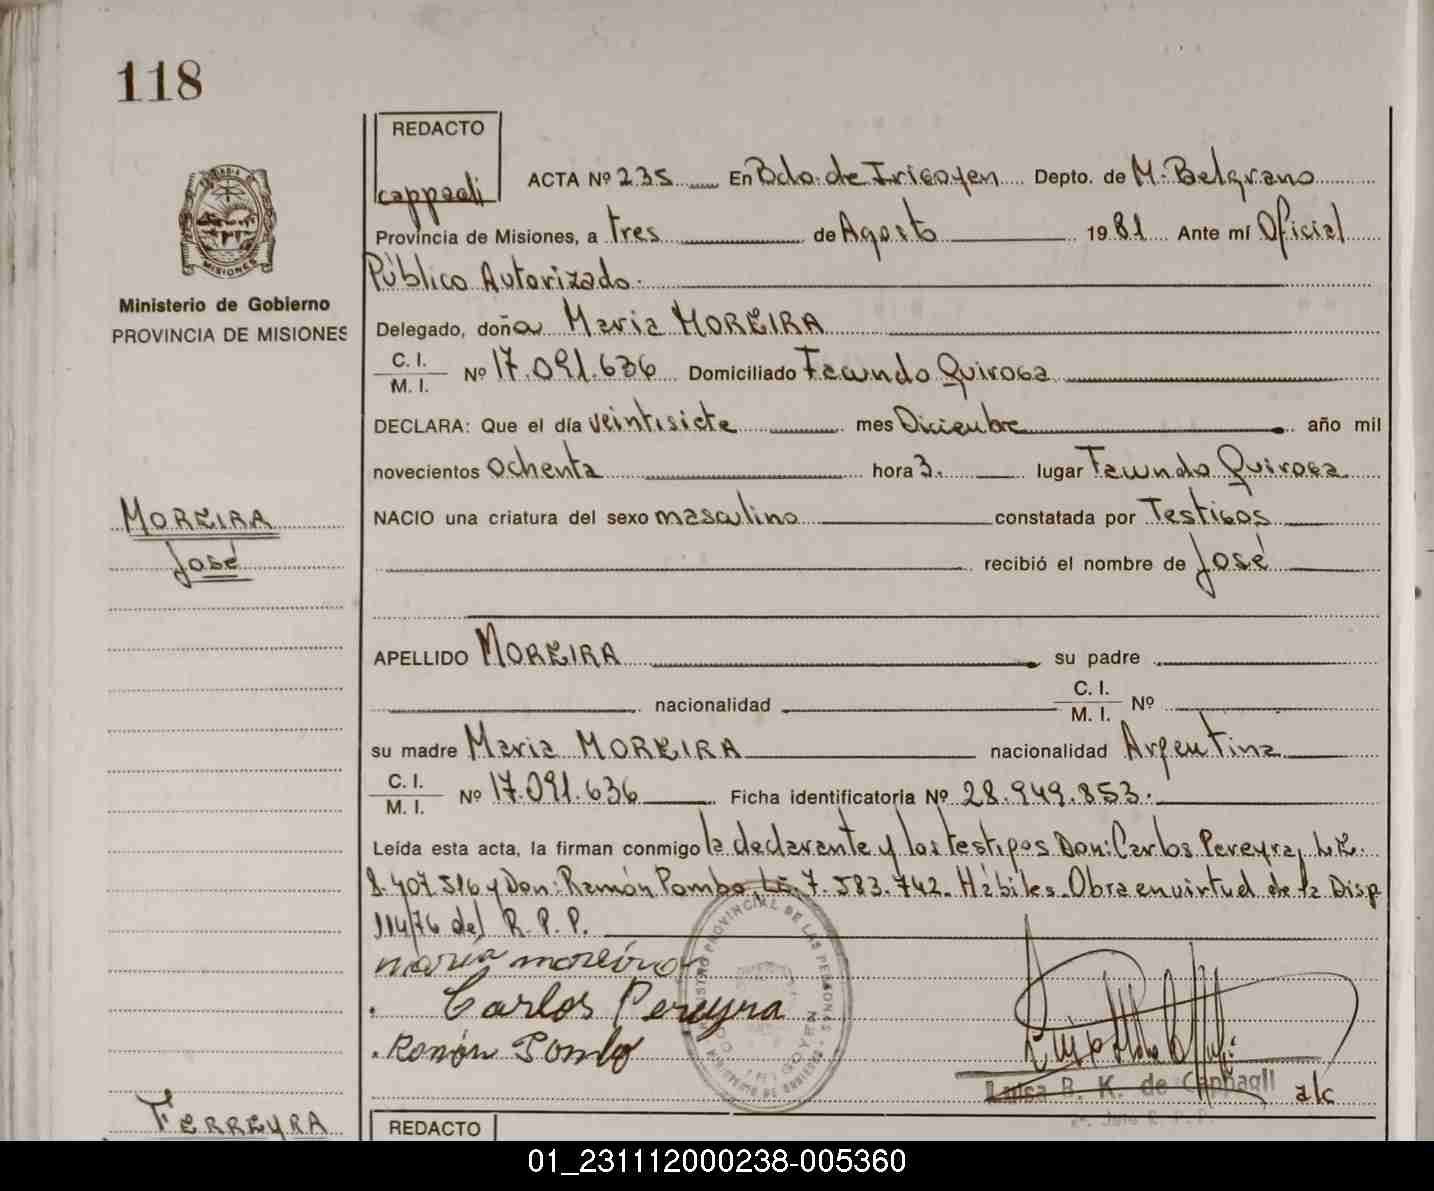 118
REDACTO
cappagli
ACTA Nº 235 En Bdo. de Irigoyen Depto. de M. Belgrano
Provincia de Misiones, a tres de Agosto 1981 Ante mí Oficial
Público Autorizado.
Delegado, doña Maria MOREIRA
C. I.
M. I. Nº 17.091.636 Domiciliado Facundo Quiroga
DECLARA: Que el día veintisiete mes Diciembre año mil
novecientos Ochenta hora 3. lugar Facundo Quiroga
NACIO una criatura del sexo masculino constatada por Testigos
recibió el nombre de José
APELLIDO MOREIRA su padre
nacionalidad C. I.
M. I. Nº
su madre Maria MOREIRA nacionalidad Argentina
C. I.
M. I. Nº 17.091.636 Ficha identificatoria Nº 28.949.853.
Leída esta acta, la firman conmigo la declarante y los testigos Don: Carlos Pereyra, L.E.
8.407.516 y Don: Ramón Pombo, L.E. 7.583.742. Hábiles. Obra en virtud de la Disp
114/76 del R.P.P.
maría moreira
Carlos Pereyra
Ramón Pombo
Luisa B. K. de Cappagli a/c
MISIONES
Ministerio de Gobierno
PROVINCIA DE MISIONES
MOREIRA
José
FERREYRA
REDACTO
01_231112000238-005360